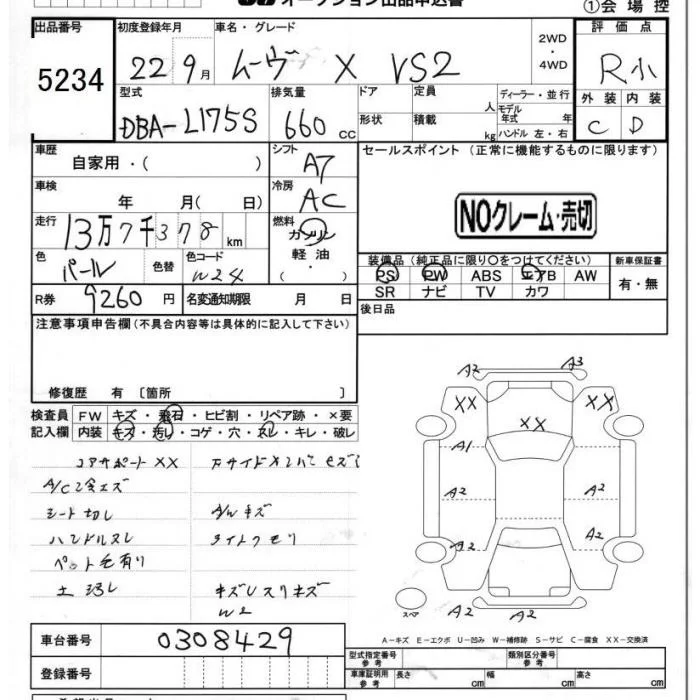 オークション出品申込書
①会場控
出品番号 初度登録年月 車名・グレード 2WD・4WD 評価点
5234 22 9月 ムーヴ X VS2 R小
型式 排気量 ドア 定員 人 ディーラー・並行 外装 内装
DBA-L175S 660 cc 形状 積載 kg モデル年式 年 ハンドル 左・右 C D
車歴 自家用・( ) シフト A7 セールスポイント (正常に機能するものに限ります)
車検 年 月( 日) 冷房 AC
NOクレーム・売切
走行 13万7千378km 燃料 ガソリン
軽油
色 パール 色替 色コード W24 ( )
装備品(純正品に限り○をつけてください) 新車保証書
PS PW ABS エアB AW 有・無
SR ナビ TV カワ
R券 9260円 名変通知期限 月 日
後日品
注意事項申告欄(不具合内容等は具体的に記入して下さい)
修復歴 有〔箇所 〕
検査員記入欄 FW キズ・飛石・ヒビ割・リペア跡・×要
内装 キズ・汚れ・コゲ・穴・スレ・キレ・破レ
コアサポートXX
シート切レ
ハンドルスレ
ライトクモリ
ペット毛有り
W2
A2 A3
XX XX
XX
A1
A2 A2
A2 A2
スペア A2 A2
A-キズ E-エクボ U-凹み W-補修跡 S-サビ C-腐食 XX-交換済
車台番号 0308429
型式指定番号 参考 類別区分番号 参考
登録番号
車庫証明用 参考 長さ cm 幅 cm 高さ cm